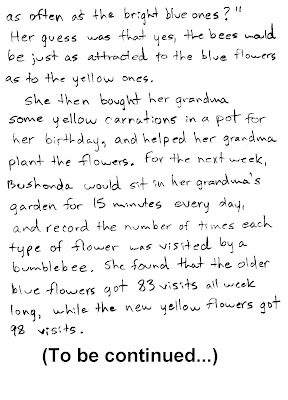 as often as the bright blue ones?"
Her guess was that yes, the bees would
be just as attracted to the blue flowers
as to the yellow ones.
She then bought her grandma
some yellow carnations in a pot for
her birthday, and helped her grandma
plant the flowers. For the next week,
Bushonda would sit in her grandma's
garden for 15 minutes every day,
and record the number of times each
type of flower was visited by a
bumblebee. She found that the older
blue flowers got 83 visits all week
long, while the new yellow flowers got
98 visits.
(To be continued...)